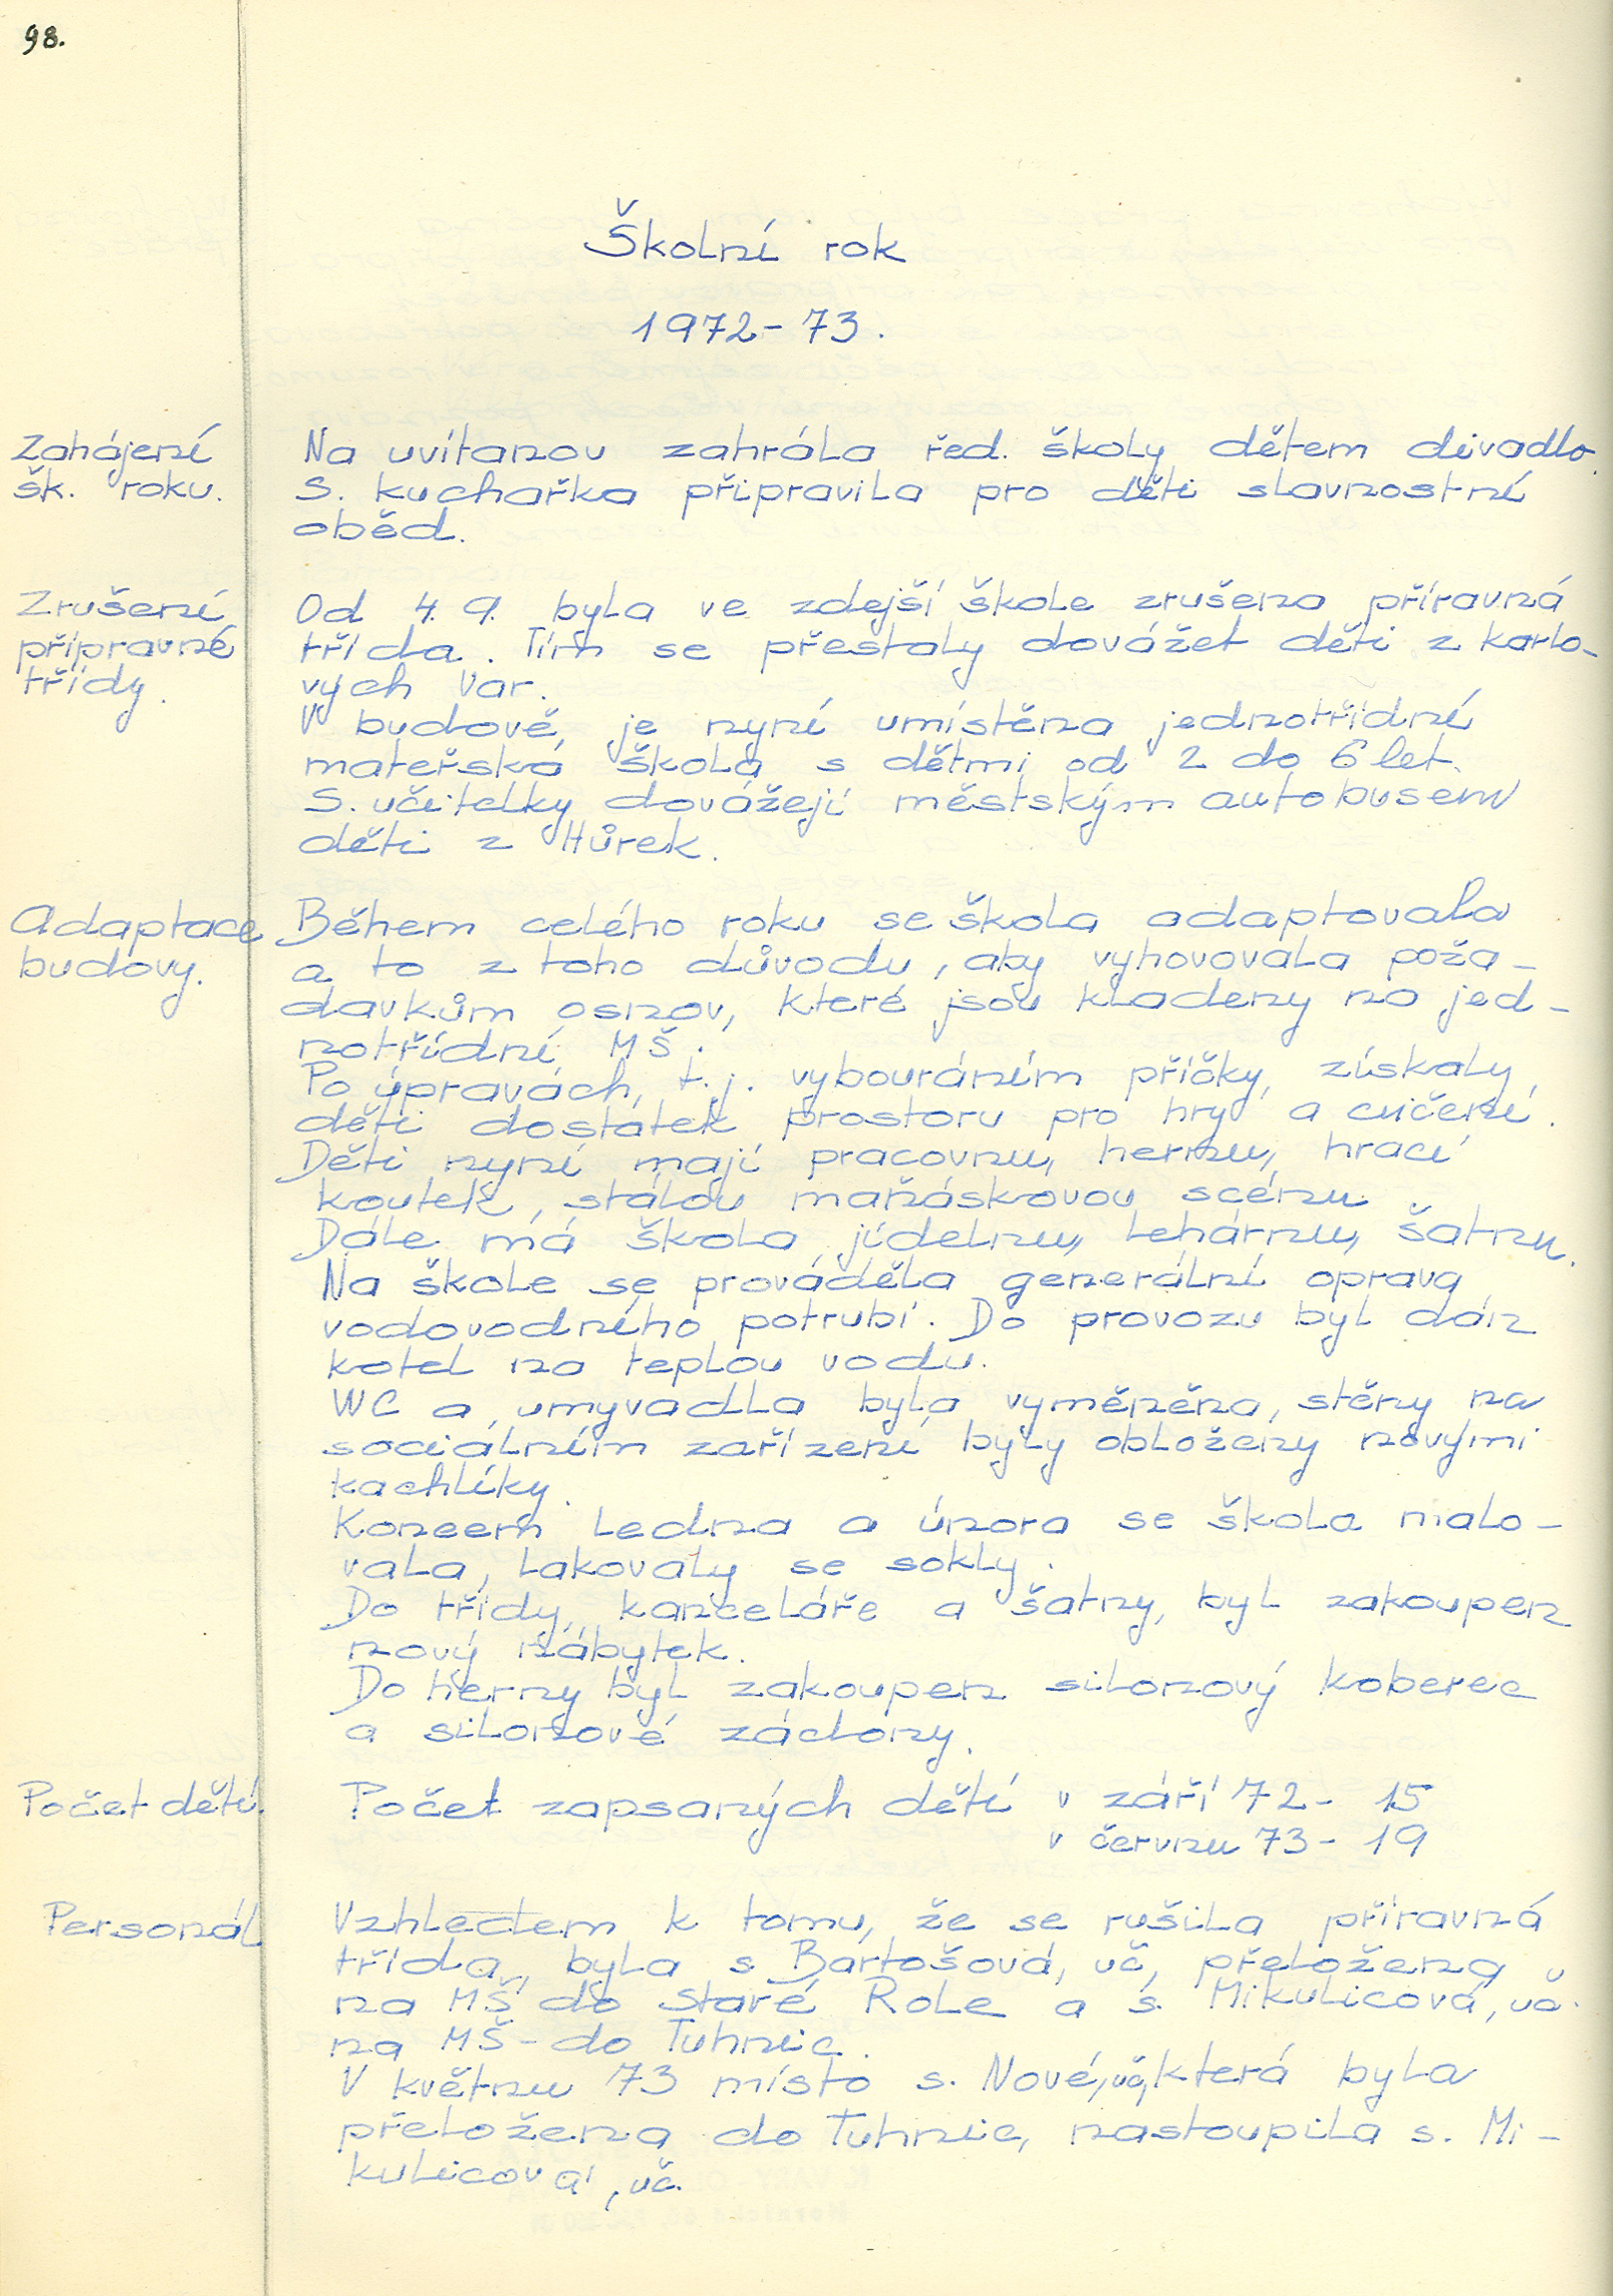 98.
Školní rok
1972-73.
Zahájení
šk. roku.
Na uvítanou zahrála řed. školy dětem divadlo.
S. kuchařka připravila pro děti slavnostní
oběd.
Zrušení
přípravné
třídy.
Od 4. 9. byla ve zdejší škole zrušena příravná
třída. Tím se přestaly dovážet děti z Karlo-
vých Var.
V budově je nyní umístěna jednotřídní
mateřská škola s dětmi od 2 do 6 let.
S. učitelky dovážejí městským autobusem
děti z Hůrek.
Adaptace
budovy.
Během celého roku se škola adaptovala
a to z toho důvodu, aby vyhovovala poža-
davkům osnov, které jsou kladeny na jed-
notřídní MŠ.
Po úpravách, t.j. vybouráním příčky, získaly
děti dostatek prostoru pro hry a cvičení.
Děti nyní mají pracovnu, hernu, hrací
koutek, stálou maňáskovou scénu.
Dále má škola jídelnu, lehárnu, šatnu.
Na škole se prováděla generální oprava
vodovodního potrubí. Do provozu byl dán
kotel na teplou vodu.
WC a umyvadla byla vyměněna, stěny na
sociálním zařízení byly obloženy novými
kachlíky.
Koncem ledna a února se škola malo-
vala, lakovaly se sokly.
Do třídy, kanceláře a šatny, byl zakoupen
nový nábytek.
Do herny byl zakoupen silonový koberec
a silonové záclony.
Počet dětí.
Počet zapsaných dětí v září 72 - 15
v červnu 73 - 19
Personál
Vzhledem k tomu, že se rušila příravná
třída, byla s Bartošová, uč, přeložena
na MŠ do Staré Role a s. Mikulicová, uč.
na MŠ - do Tuhnic.
V květnu 73 místo s. Nové, uč, která byla
přeložena do Tuhnic, nastoupila s. Mi-
kulicová, uč.